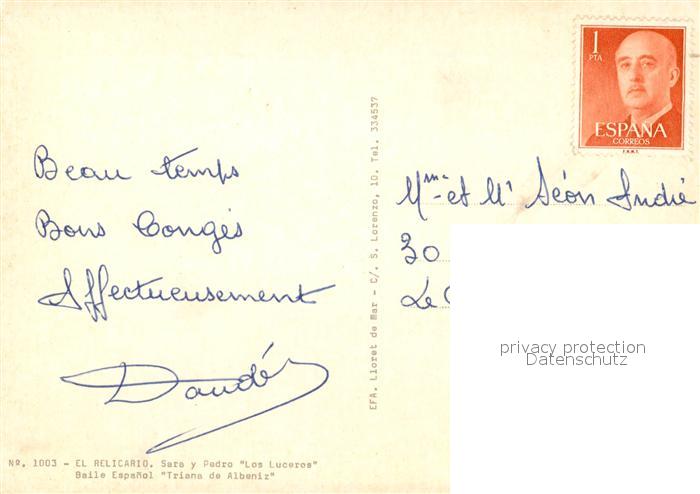 Beau temps
Bons Congés
Affectueusement
Daudé
Nº. 1003 - EL RELICARIO. Sara y Pedro "Los Luceros"
Baile Español "Triana de Albeniz"
EFA. Lloret de Mar - C/. S. Lorenzo, 10. Tel. 334537
1
PTA
ESPAÑA
CORREOS
F.N.M.T.
Mme et Mr Séon André
30
Le
privacy protection
Datenschutz